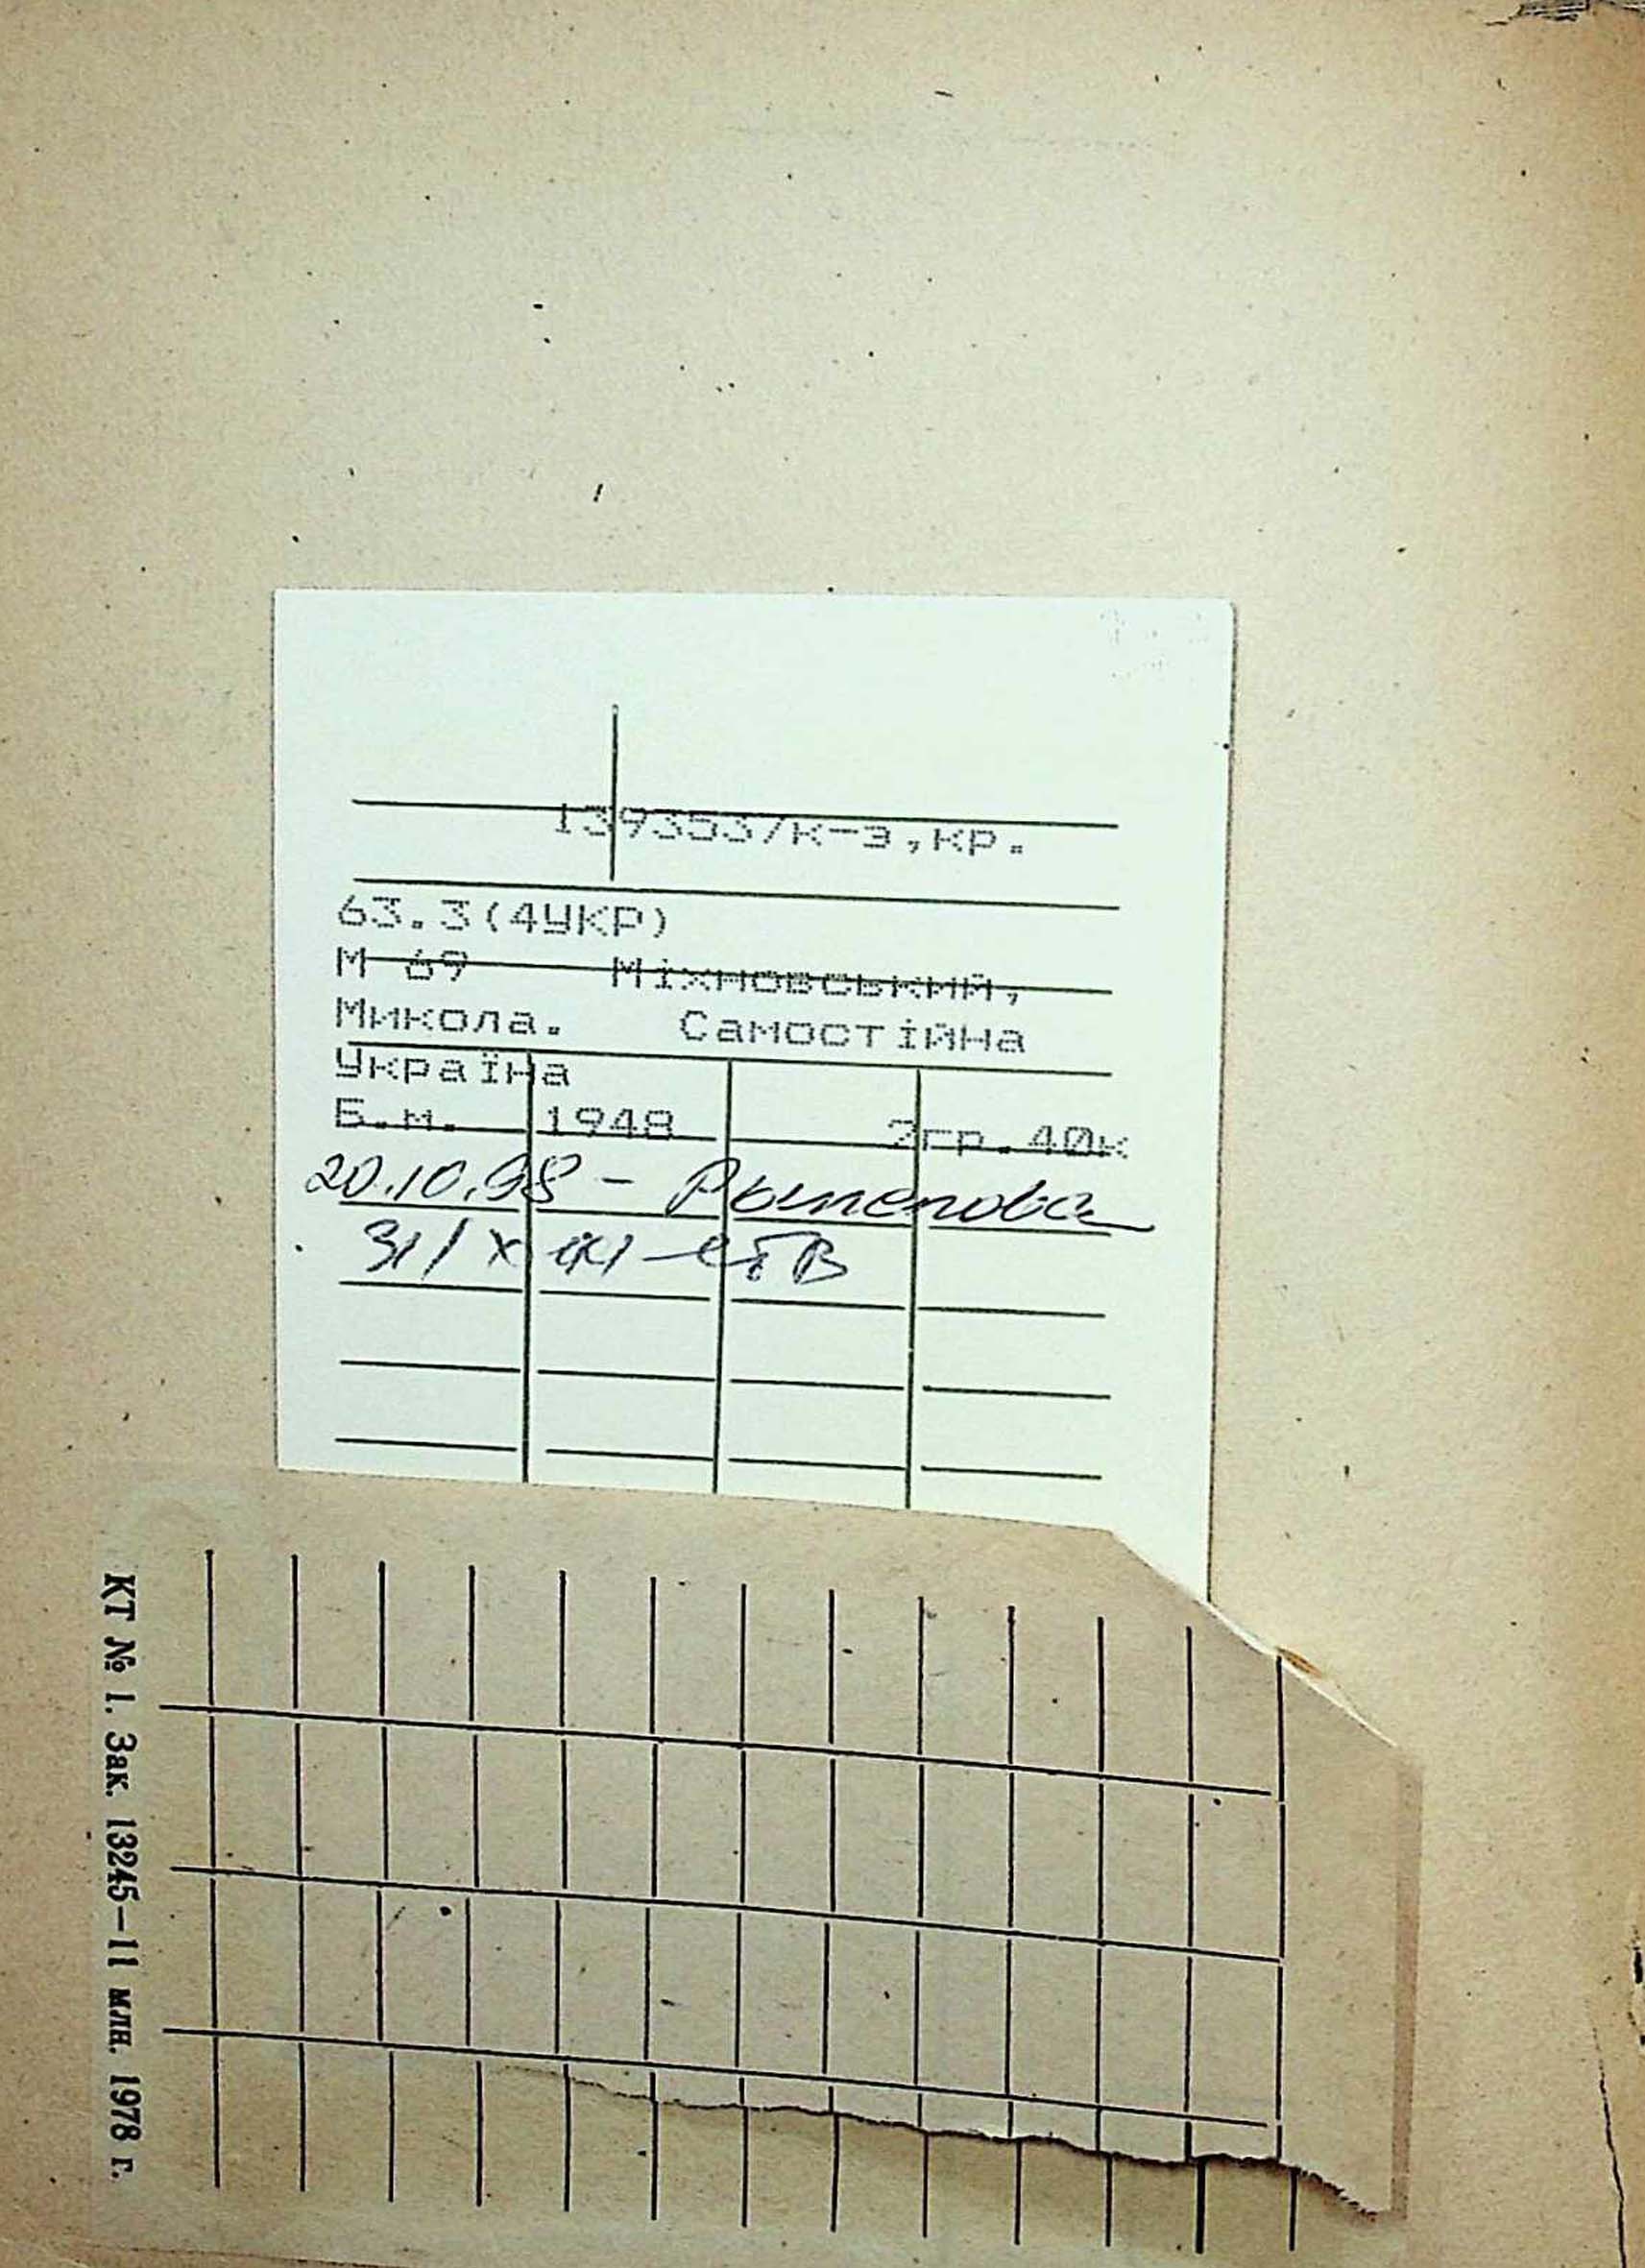 139353/к-э,кр.
63.3(4УКР)
М 69 Міхновський,
Микола. Самостійна
Україна
Б.м. 1948 2гр.40к
20.10.98 –
КТ № 1. Зак. 13245—11 млн. 1978 г.